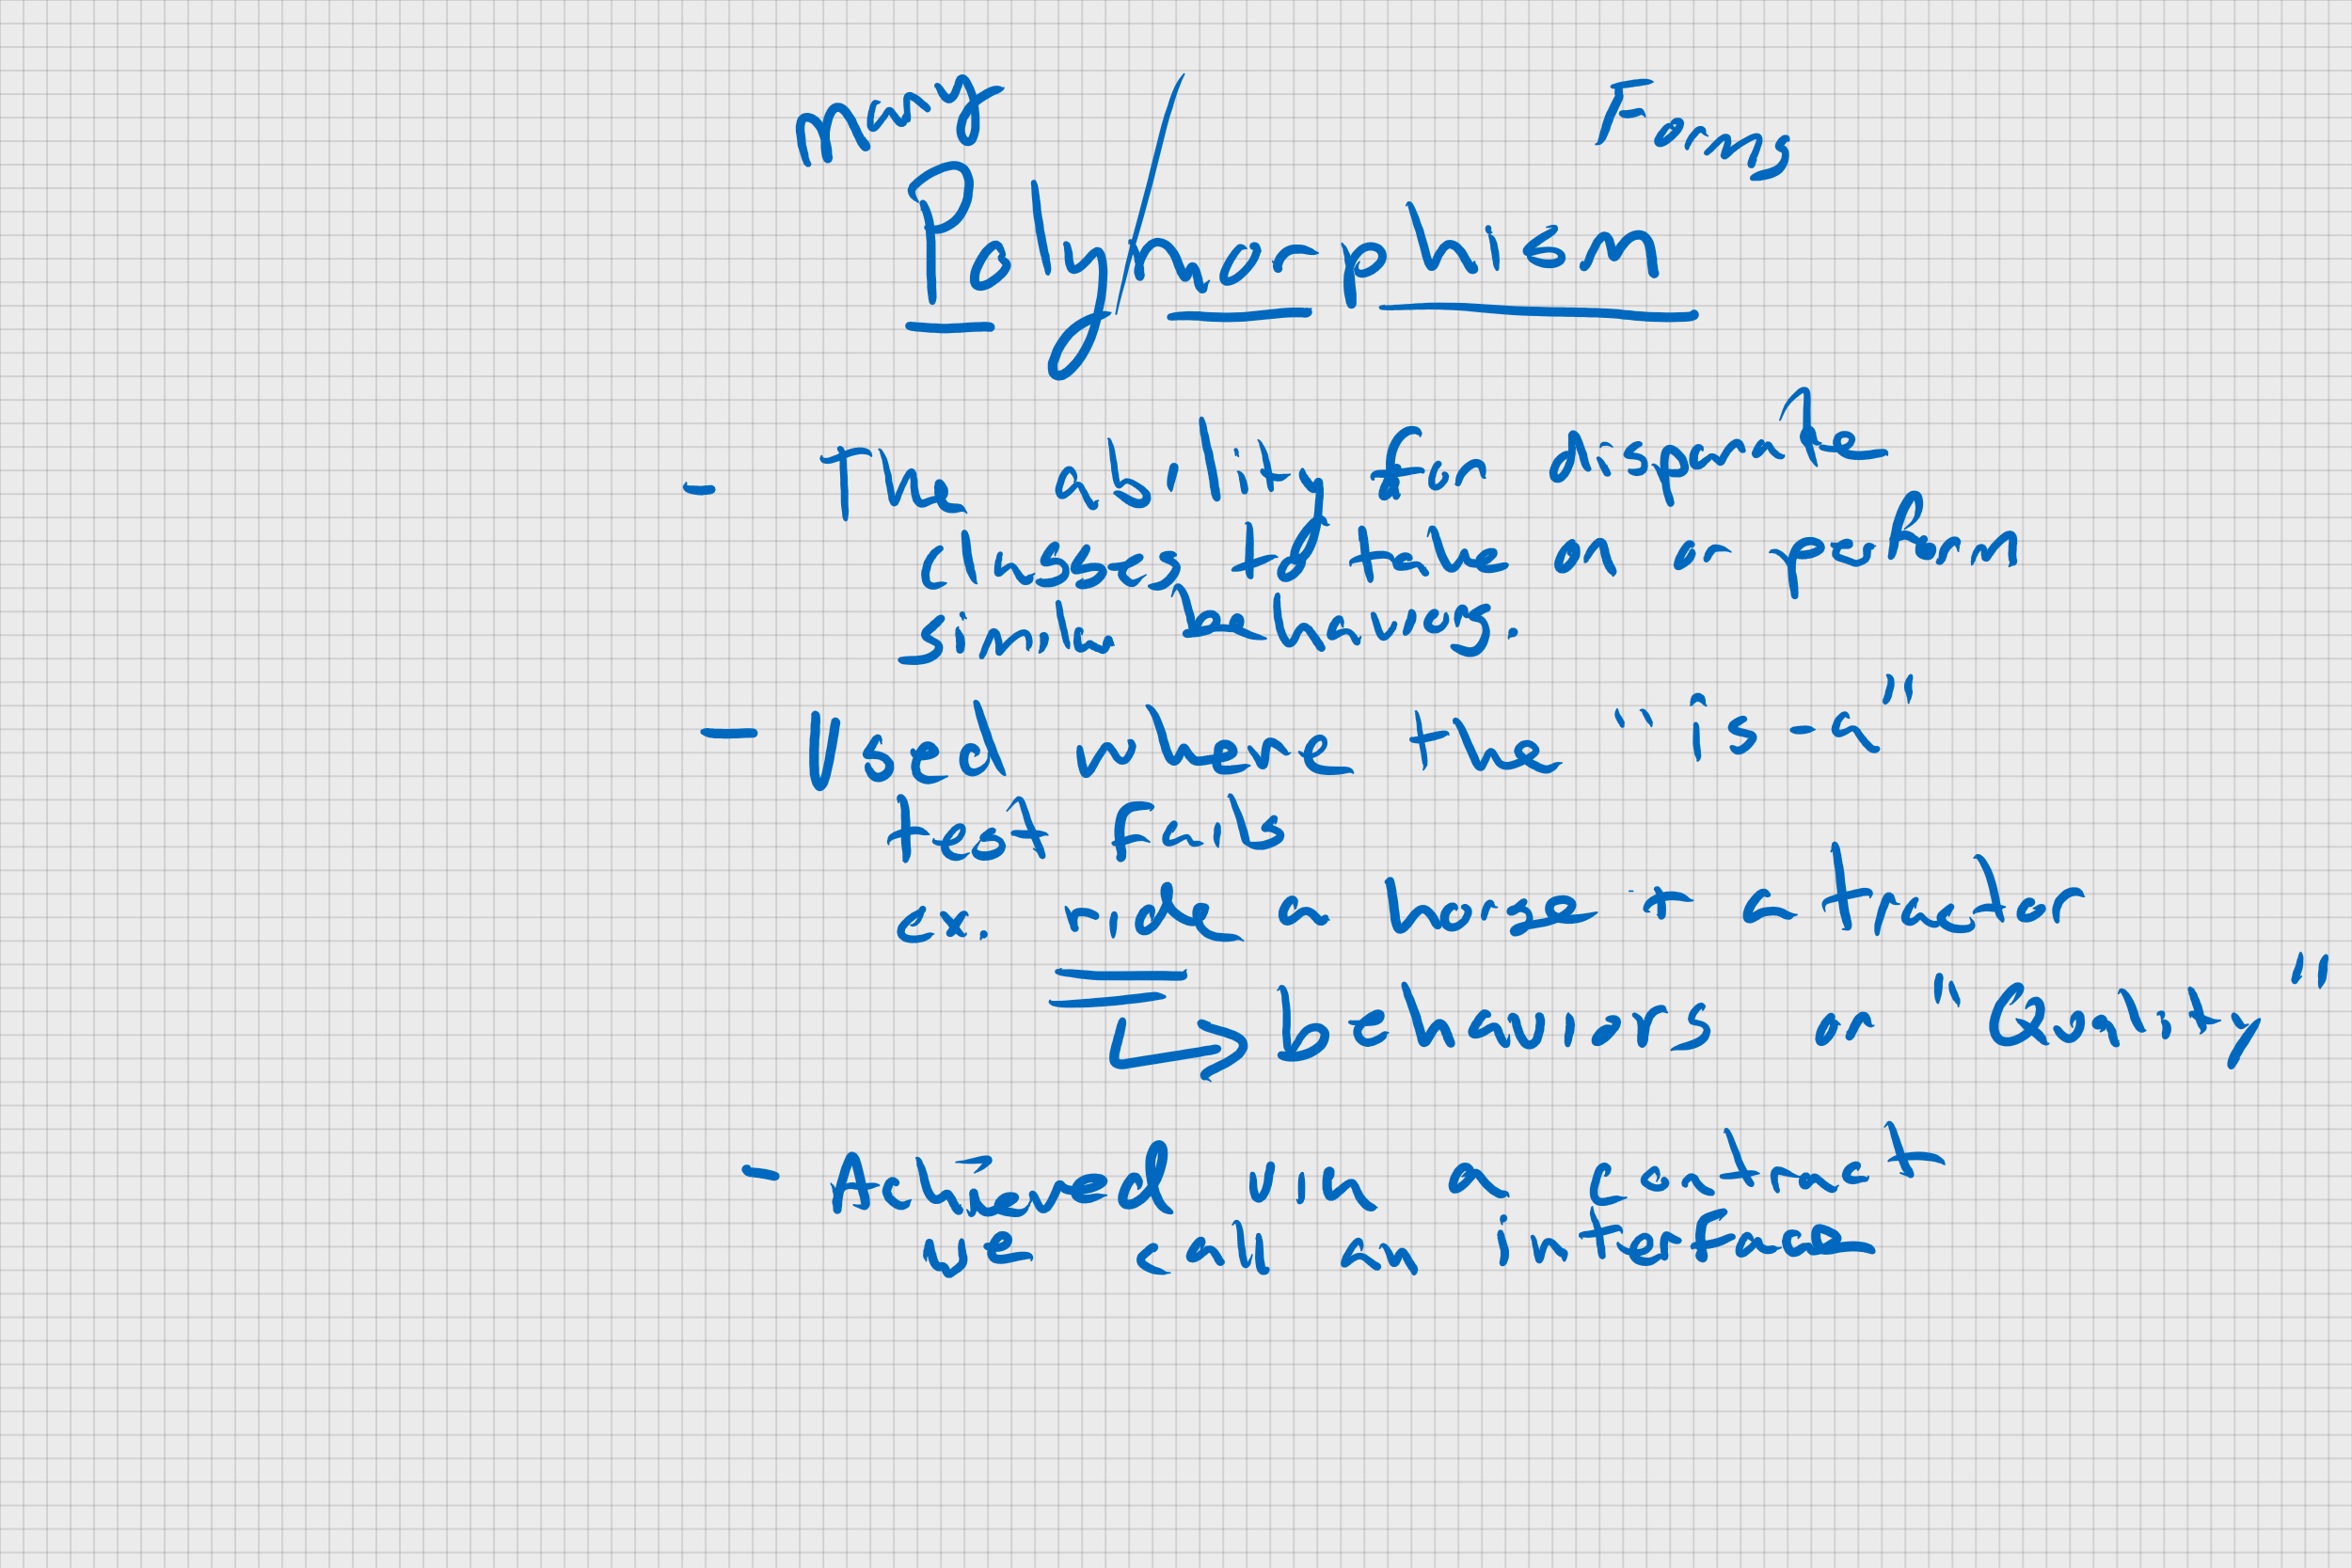 Many Forms
Polymorphism
- The ability for disparate
classes to take on or perform
similar behaviors.
- Used where the "is-a"
test fails
ex. ride a horse + a tractor
behaviors or "Quality"
- Achieved via a contract
we call an interface